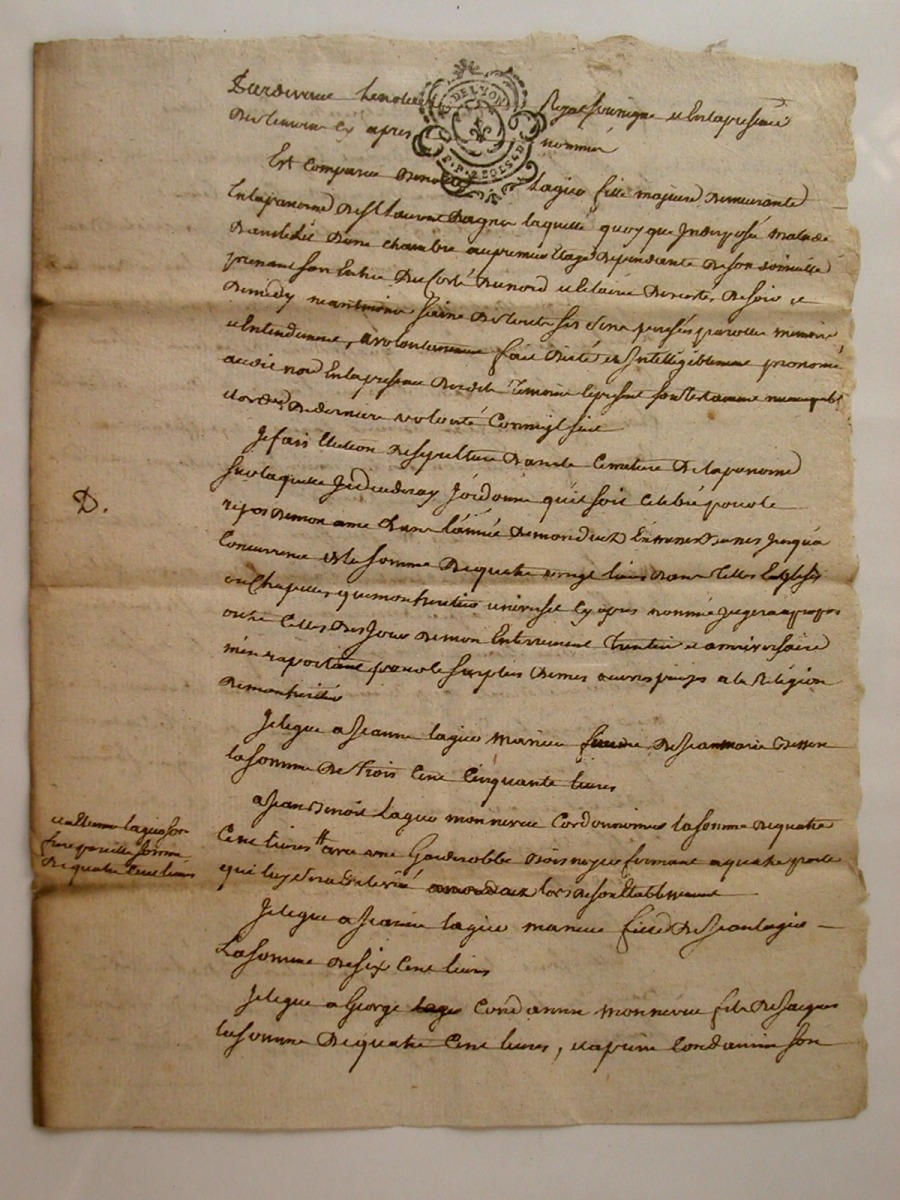 Pardevant le notaire Royal soussigné et en la presence
des temoins cy apres nommés
G. DE LYON
P.P. 2 SOLS 4 D.
Est comparue Benoite Lagier fille majeure demeurante
En la paroisse de St Laurent Dagny laquelle quoy que Indisposée malade
Dans le lit d'une chambre au premier Etage dependante de son domicille
prenant son Entrée du Coté du nord et Eclairée de
De midy neantmoins saine de tous ses sens pensés parolle memoire
et Entendement, a volontairement fait dicté et Intelligiblement prononcé
audit no.e En la presence desdits Temoins le present son testament noncupatif
et ordre de derniere volonté Comme il suit
Je fais Election de sepulture dans le Cemetiere de la paroisse
sur laquelle Je decederay J'ordonne qu'il soit Celebré pour le
repos de mon ame dans l'année de mon deces Jusqua
Concurrence de la somme de quatre vingt livres dans telles Eglises
ou Chapelles que mon heritier universel cy apres nommé Jugera apropos
outre Celles des Jour de mon Enterrement trentin et anniversaire
m'en raportant pour le surplus de mes œuvres pies a la Religion
De mon heritier
D.
Je legue a Jeanne Lagier ma niece femme de Jean marie
la somme de trois Cent Cinquante livres
a Jean Benoit Lagier mon neveu Cordonnier la somme de quatre
Cent livres # avec une Garderobbe Bois noyer fermant a quatre porte
qui luy sera delivré lors de son Etablissement
et a Etienne Lagier son
frere pareille somme
De quatre Cent livres
Je legue a Jeanne Lagier ma niece fille de Jean Lagier
La somme de six Cent livres
Je legue a George Condamin mon neveu fils de Jacques
la somme de quatre Cent livres, et a pierre Condamin son